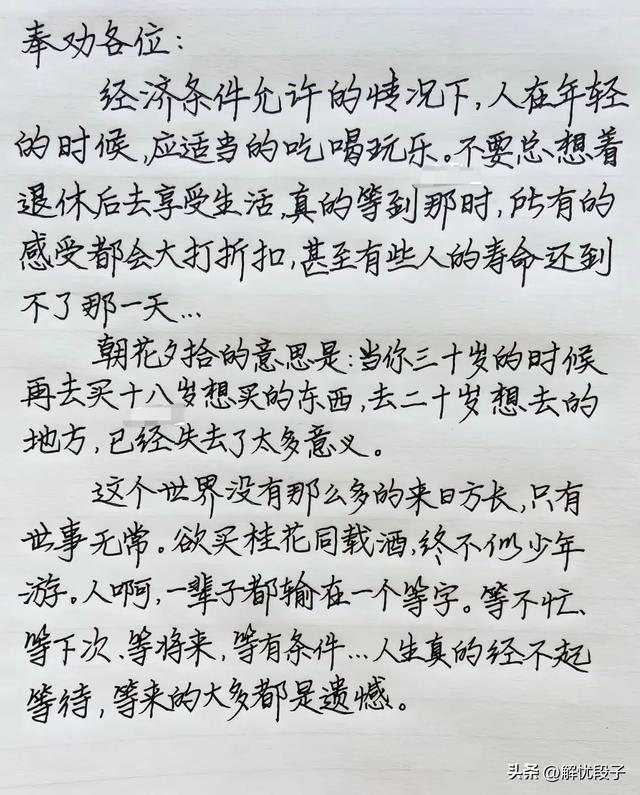 奉劝各位：
经济条件允许的情况下,人在年轻
的时候,应适当的吃喝玩乐。不要总想着
退休后去享受生活,真的等到那时,所有的
感受都会大打折扣,甚至有些人的寿命还到
不了那一天…
朝花夕拾的意思是:当你三十岁的时候
再去买十八岁想买的东西,去二十岁想去的
地方,已经失去了太多意义。
这个世界没有那么多的来日方长,只有
世事无常。欲买桂花同载酒,终不似少年
游。人啊,一辈子都输在一个等字。等不忙、
等下次、等将来,等有条件…人生真的经不起
等待,等来的大多都是遗憾。
头条 @解忧段子